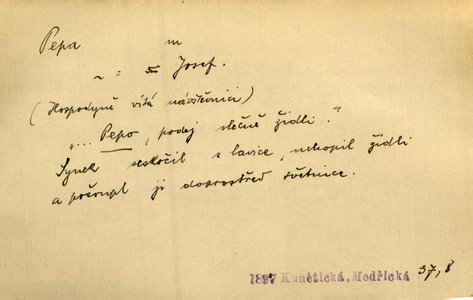 Pepa m
~ = Josef.
(Hospodyně vítá návštěvnici)
"... Pepo, podej slečně židli."
Synek seskočil s lavice, uchopil židli
a přisunul ji doprostřed světnice.
1897 Kunětická, Medřická 37,8